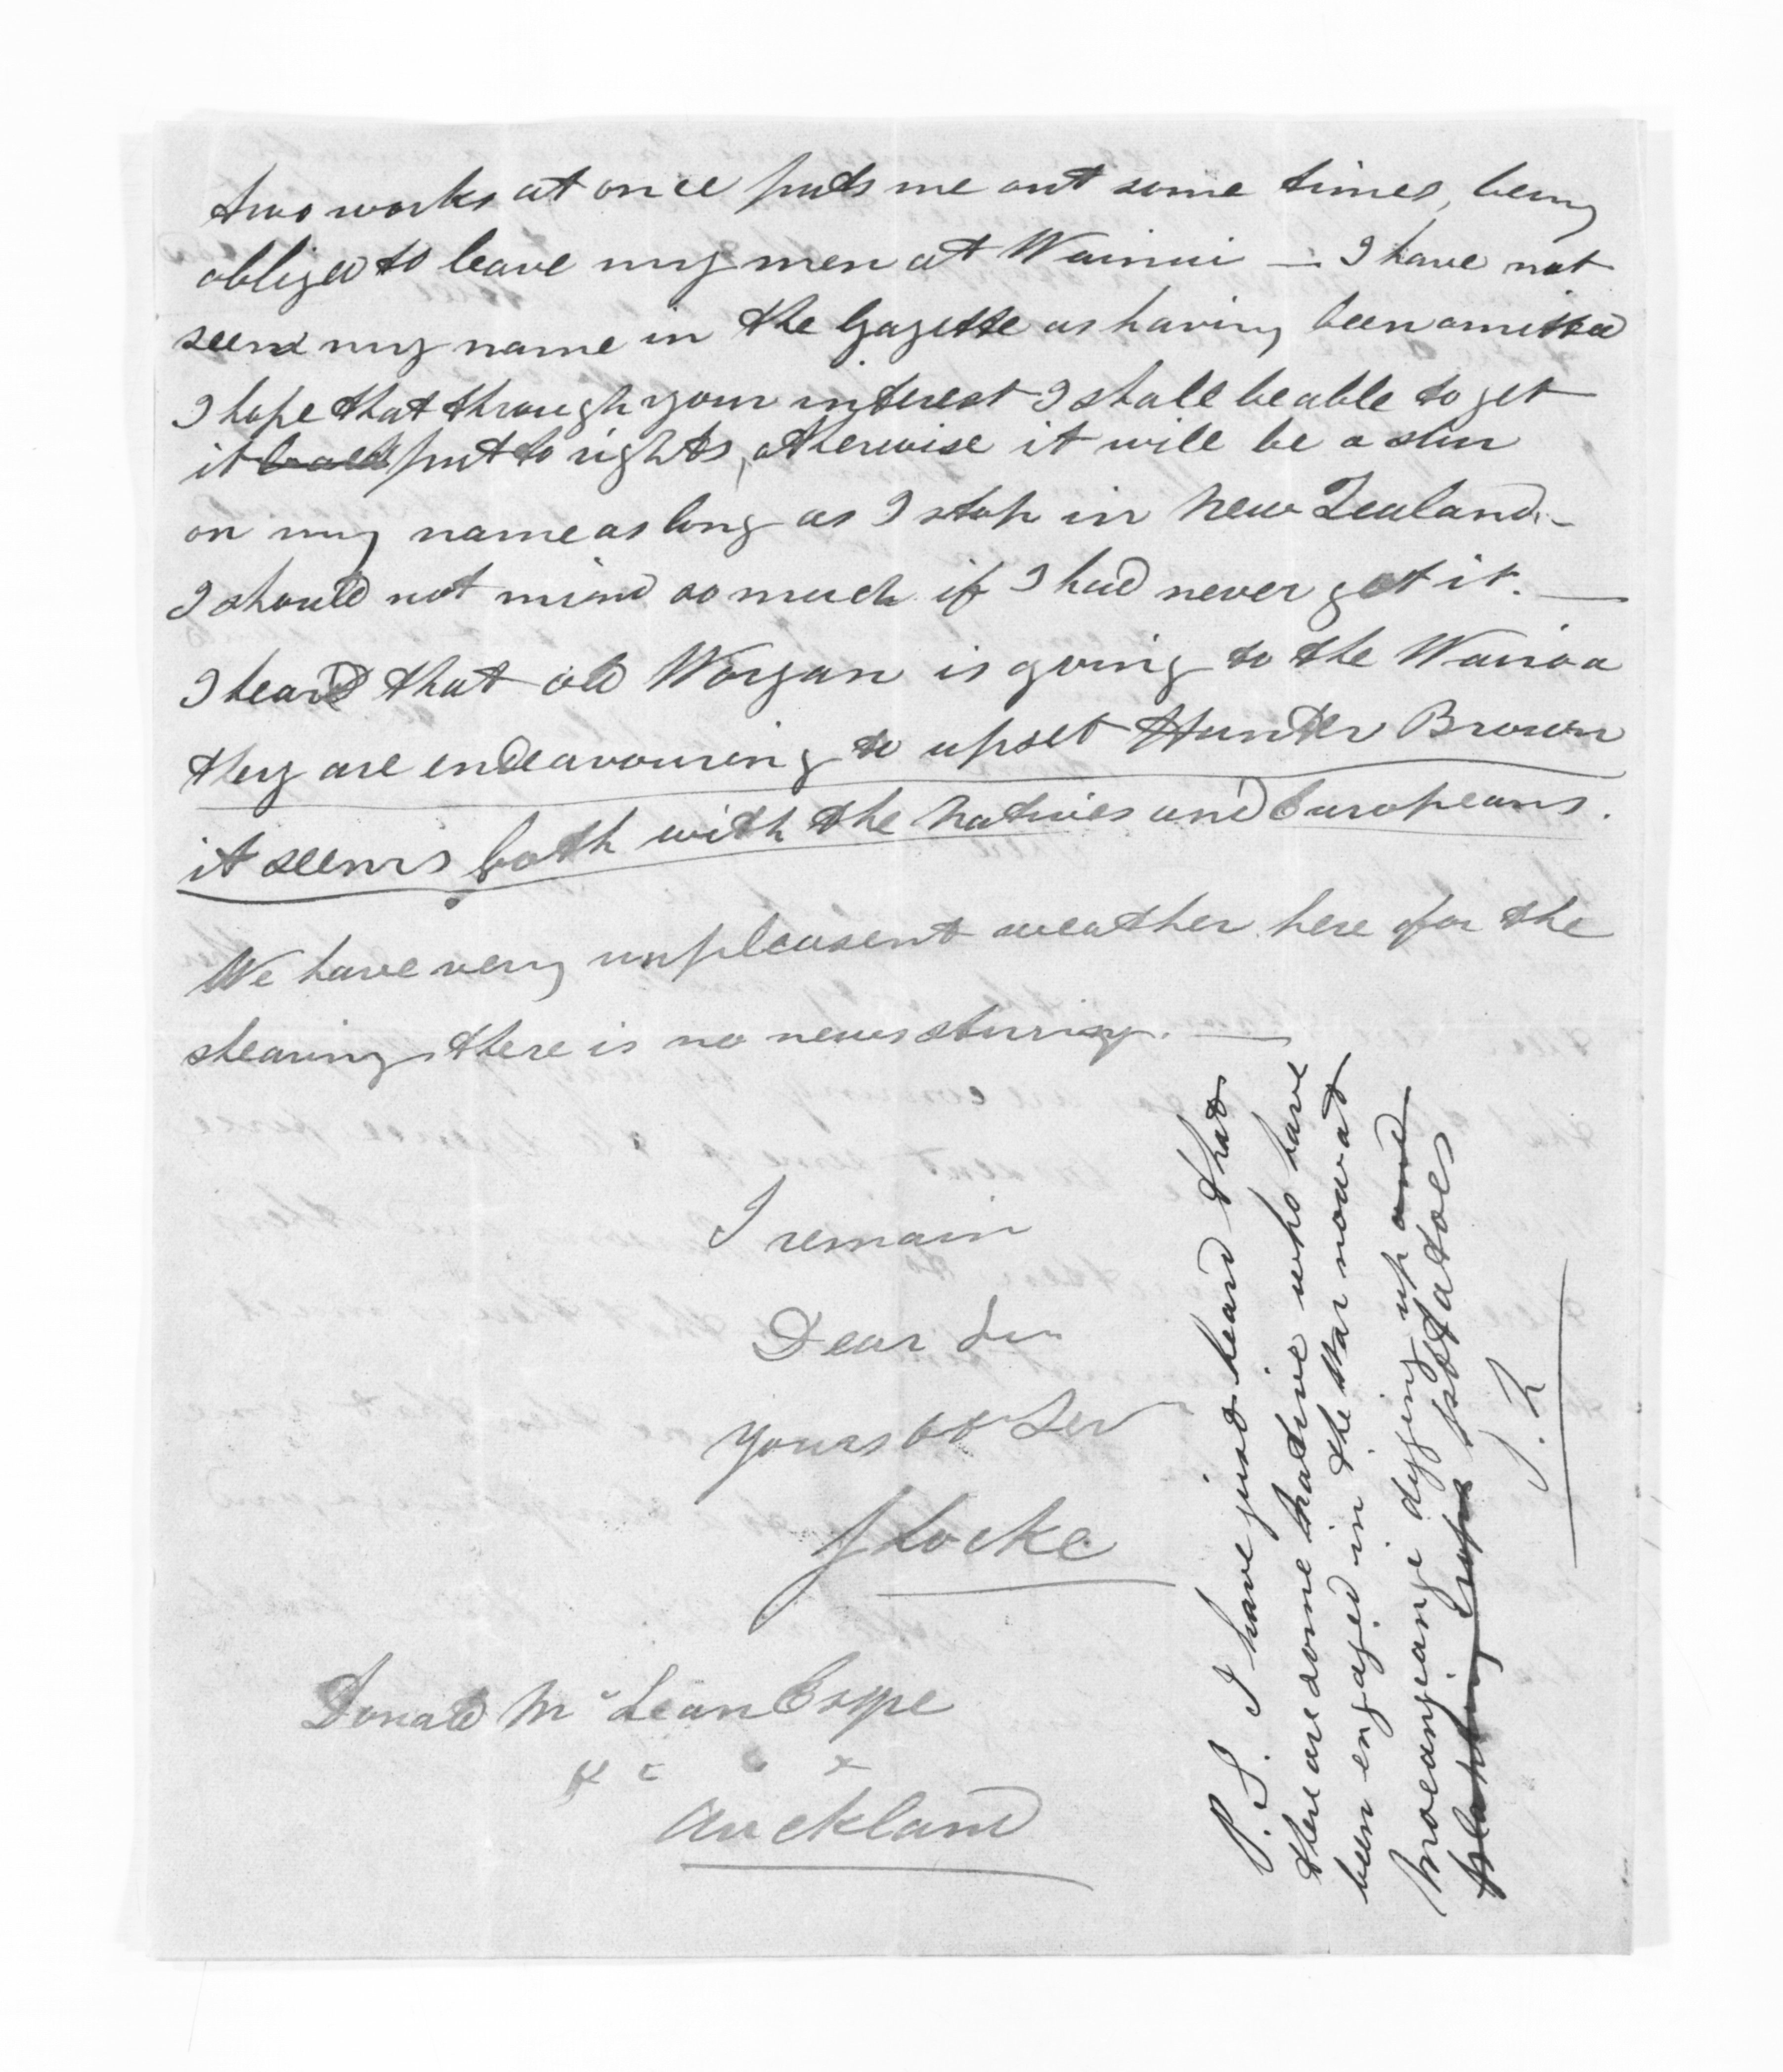 two works at once puts me out some times, being
obliged to leave my men at Wainui — I have not
seen my name in the Gazette as having been omitted
I hope that through your interest I shall be able to get
it put to rights, otherwise it will be a slur
on my name as long as I stop in New Zealand. —
I should not mind so much if I had never got it. —
I heard that old Worgan is going to the Wairoa
they are endeavouring to upset Hunter Brown
it seems both with the Natives and Europeans.
We have very unpleasent weather here for the
shearing there is no news sturring. —
I remain
Dear Sir
yours ob Ser
S Locke
Donald McLean Esqre
&c &c
Auckland
P.S. I have just heard that
there are some native who have
been engaged in the War now at
Moeangiangi digging up and
planting crops potatoes
S. L